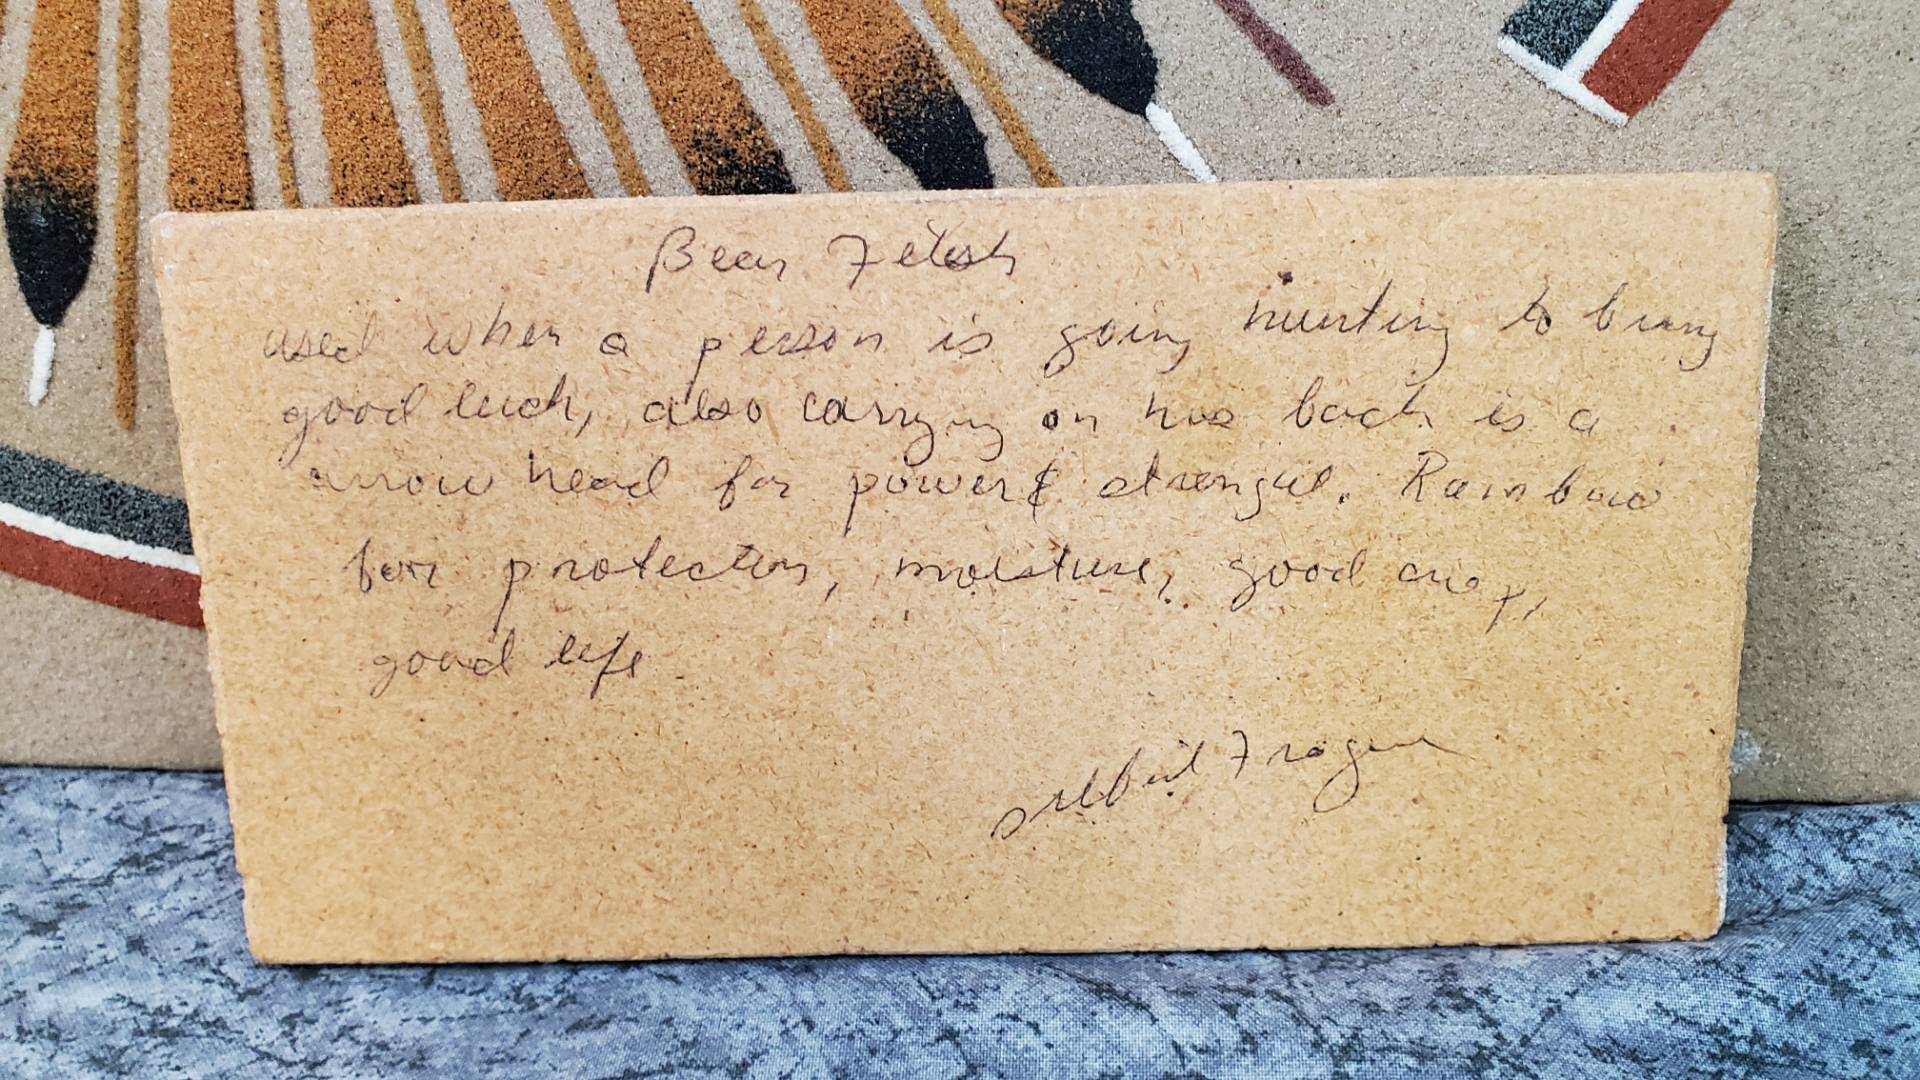 Bear Fetish
used when a person is going hunting to bring
good luck, also carrying on his back is a
arrow head for power & strength. Rainbow
for protection, moisture, good crop,
good life